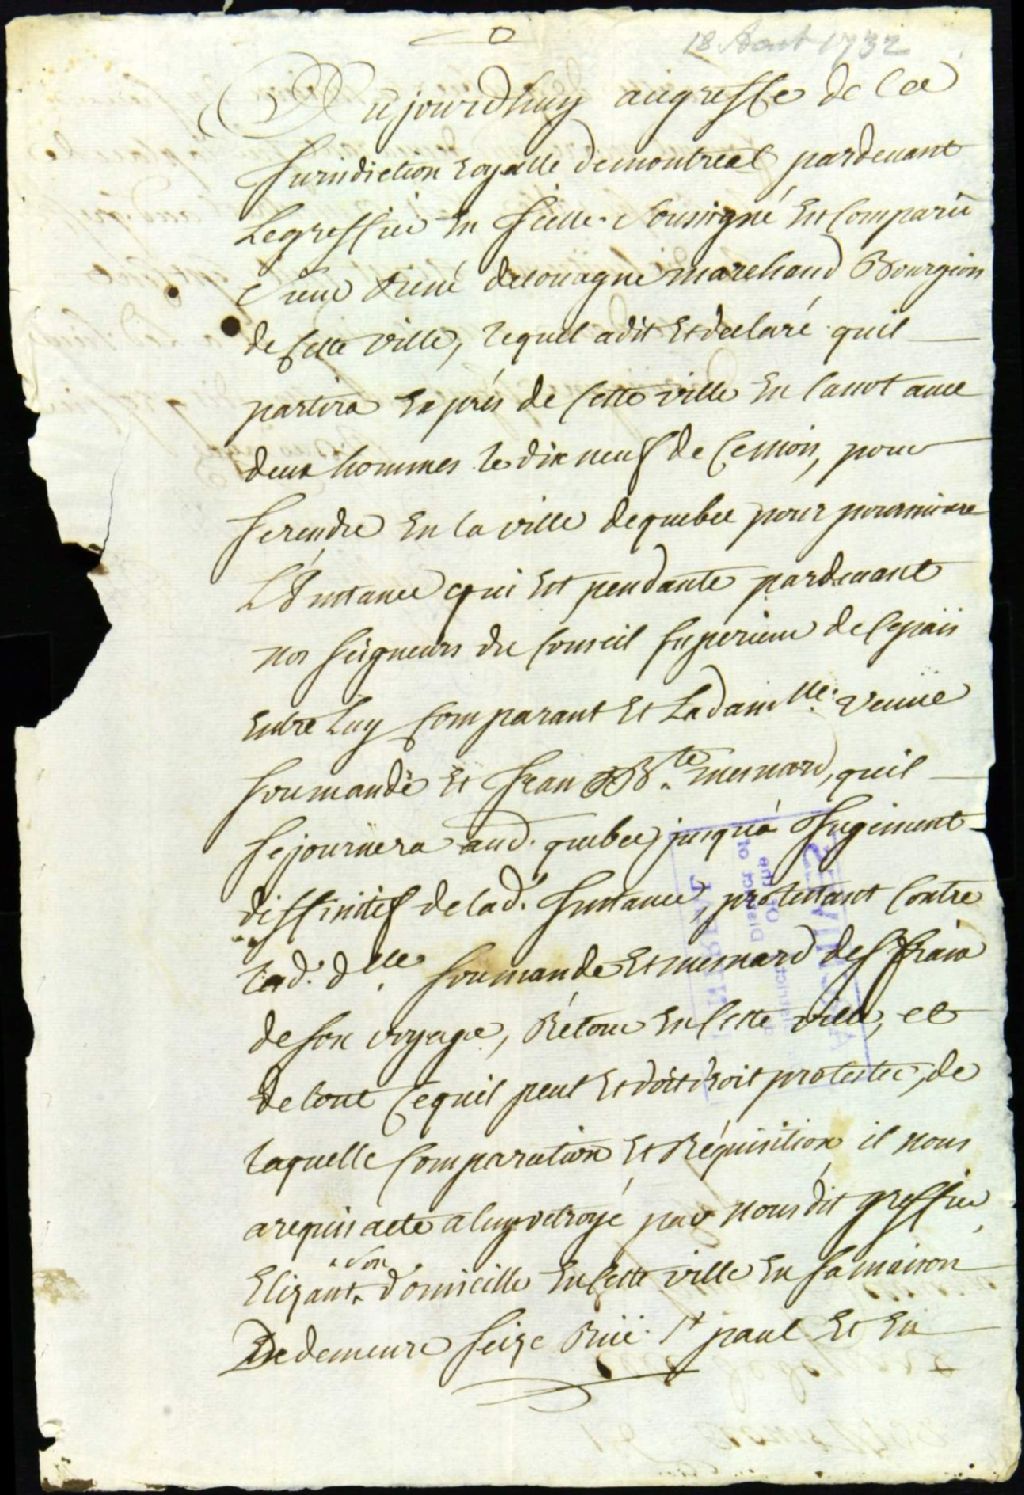 18 Aout 1732
Aujourdhuy au greffe de la
Jurisdiction Royalle de montreal pardevant
Le greffier en icelle soussigné Est Comparu
sieur René decouagne marchand Bourgeois
de Cette ville, lequel a dit Et declaré quil
partira Exprés de Cette ville En Canot avec
deux hommes le dix neuf de Ce mois, pour
se rendre En la ville de quebec pour poursuivre
L'Instance qui Est pendante pardevant
nos seigneurs du Conseil superieur de Ce païs
Entre Luy Comparant Et La dam.lle veuve
soumande Et Jean Bte. mesnard, quil
sejournera aud. quebec jusqu'a Jugement
diffinitif de lad. Instance, protestant Contre
lad. dlle. soumande Et mesnard des frais
de son voyage, Rétour En Cette ville, et
de tout Ce quil peut Et doit droit protester, de
laquelle Comparution Et Réquisition il nous
a requis acte a luy octroyé par nous dit greffier
Elizant son domicille En Cette ville En sa maison
De demeure seize Rüe St paul Et En